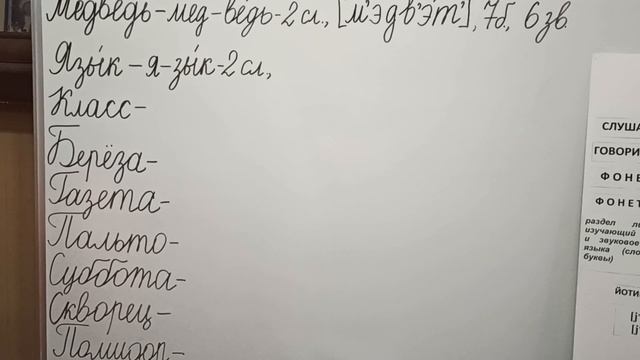 Медведь-мед-ве́дь-2 сл., [м'эдв'э́т'], 7б, 6 зв.
Язы́к-я-зы́к-2сл,
Класс-
Берёза-
Газета-
Пальто-
Суббота-
Скворец-
СЛУША
ГОВОРИ
ФОНЕ
ФОНЕТ
раздел
изучающий
и звуковое
языка (сло
буквы)
йоти